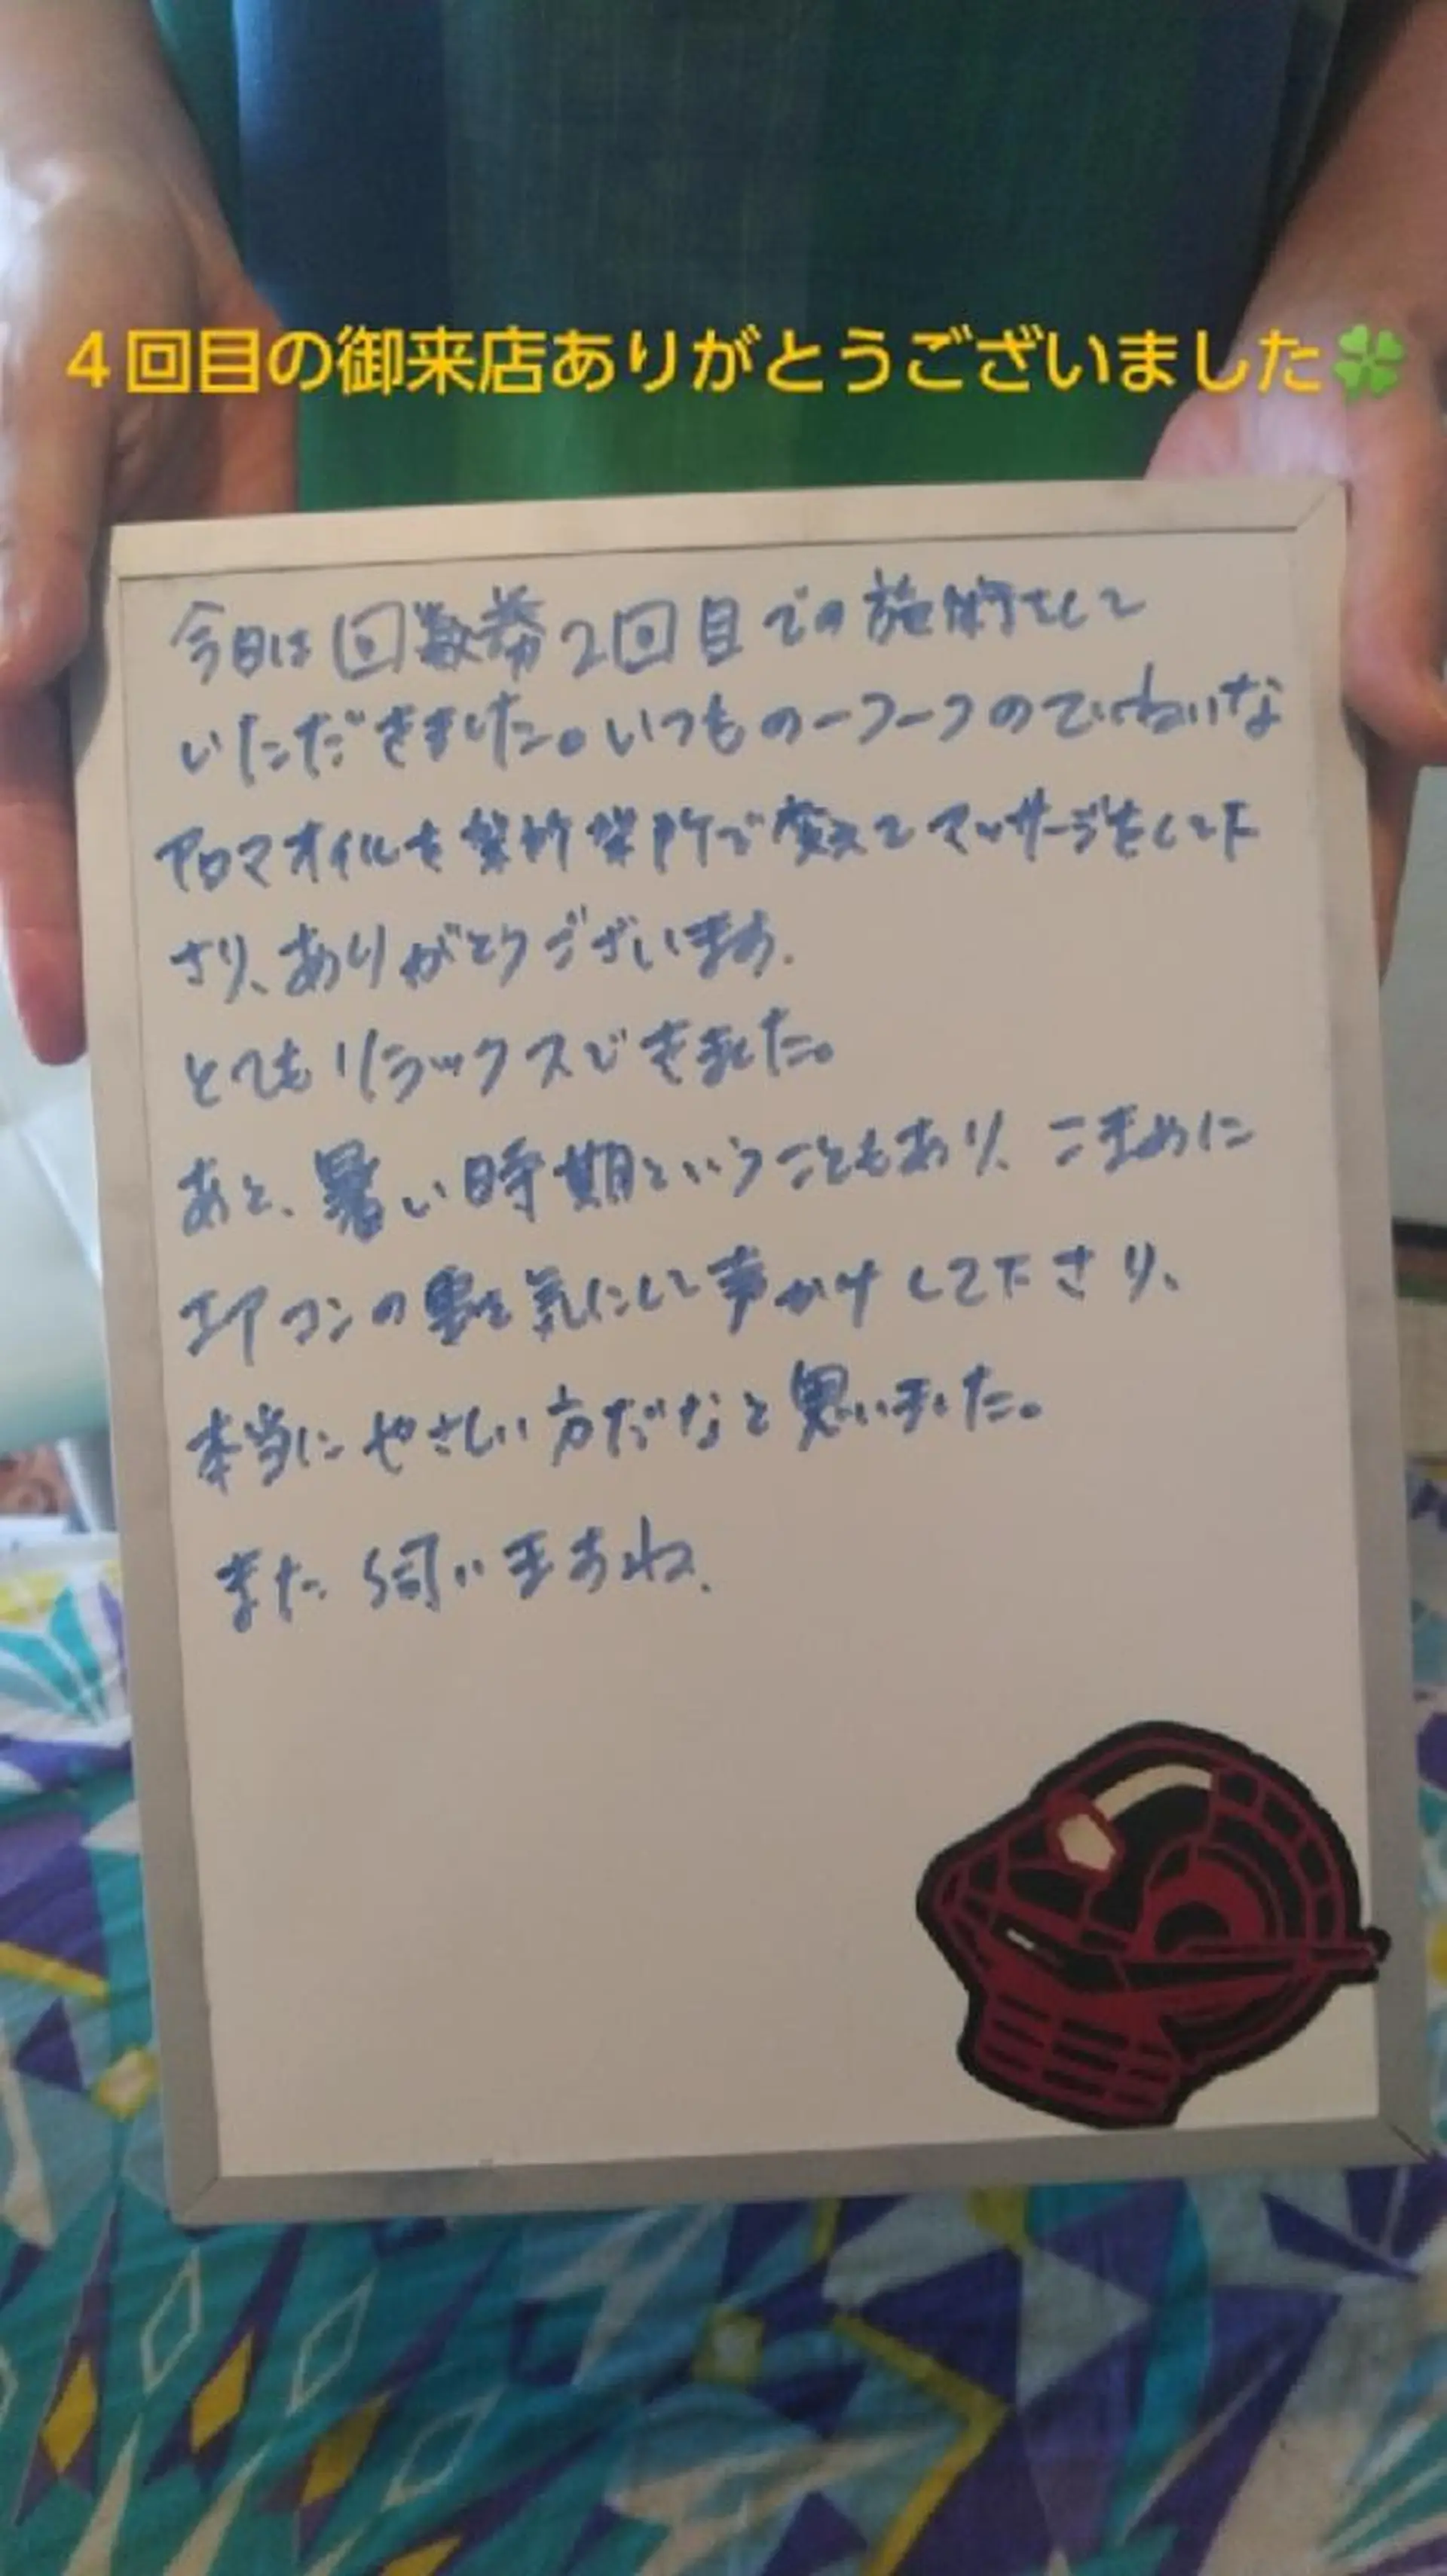 4回目の御来店ありがとうございました🍀
今日は回数券2回目での施術をして
いただきました。いつもの一つ一つのていねいな
アロマオイルを 変えてマッサージをして下
さり、ありがとうございます.
とてもリラックスできました。
あと、暑い時期ということもあり、こまめに
エアコンの 気にして声かけして下さり、
本当にやさしい方だなと思いました。
また伺いますね.